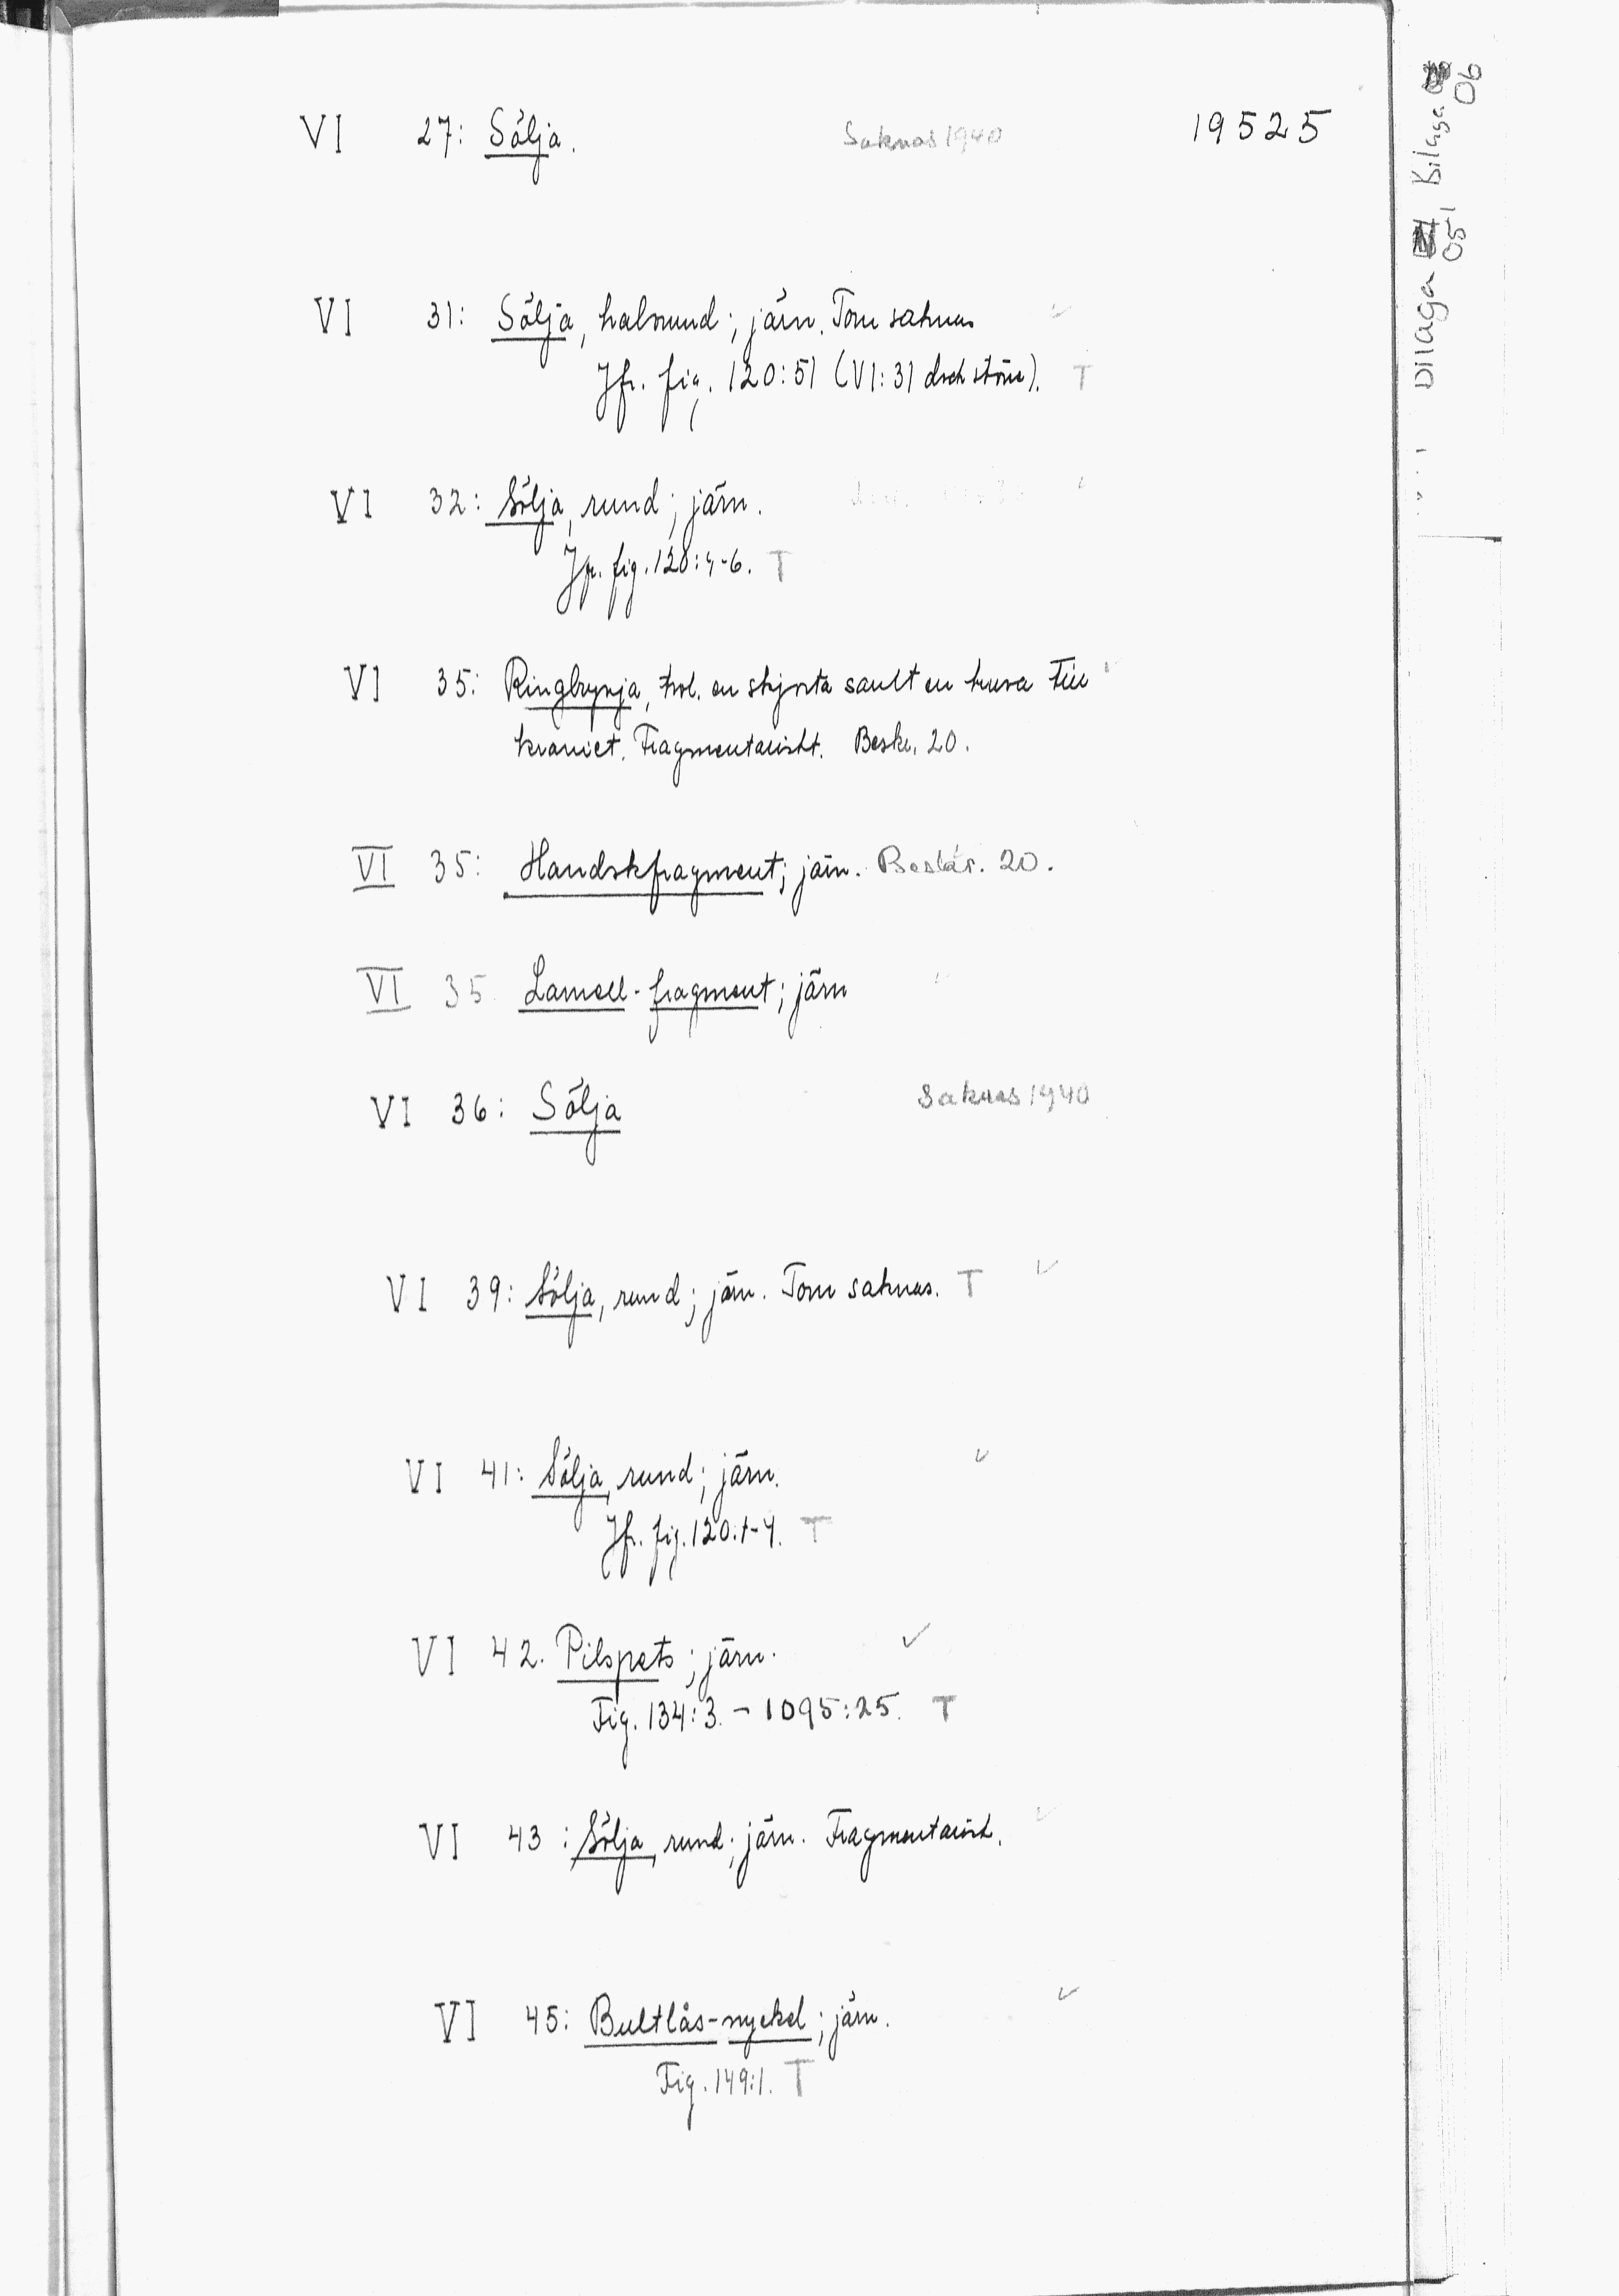 VI 27: Sölja. Saknas 1940 19525
VI 31: Sölja, halvrund; järn. Torn saknas
Jfr. fig. 120:51 (VI:31 dock större). T
VI 32: Sölja, rund; järn.
Jfr. fig. 120:4-6. T
VI 35: Ringbrynja, trol. en skjorta samt en huva till
kraniet. Fragmentariskt. Beskr. 20.
VI 35: Handskfragment; järn. Beskr. 20.
VI 35 Lamell-fragment; järn
VI 36: Sölja Saknas 1940
VI 39: Sölja, rund; järn. Torn saknas. T
VI 41: Sölja, rund; järn.
Jfr. fig. 120:1-4. T
VI 42. Pilspets; järn.
Fig. 134:3. – 1095:25. T
VI 43: Sölja, rund; järn. Fragmentarisk.
VI 45: Bultlås-nyckel; järn.
Fig. 149:1. T
Bilaga 05, Bilaga 06